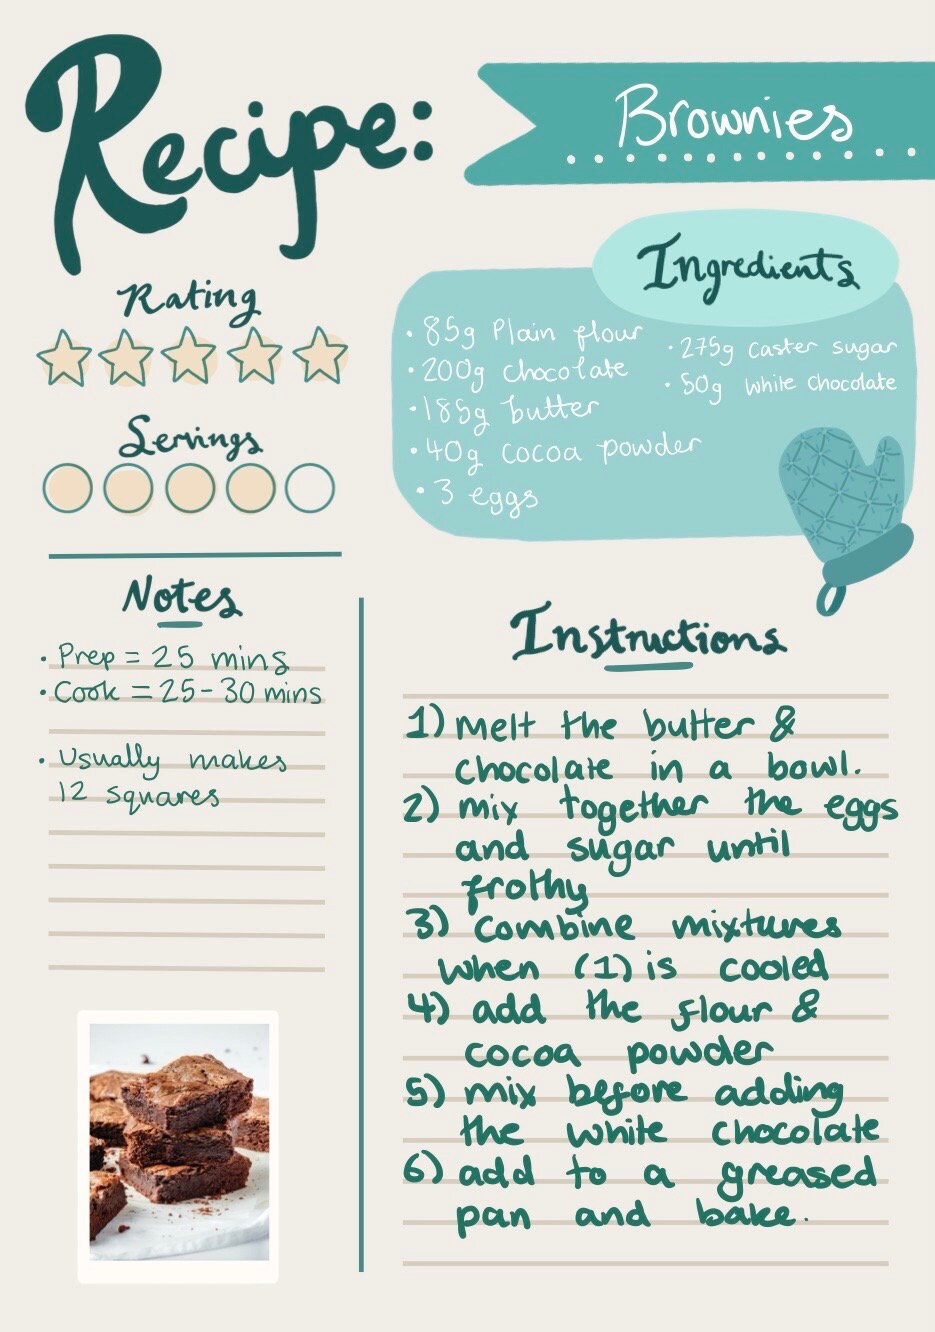 Recipe:
Brownies
Rating
Servings
Ingredients
• 85g Plain flour
• 200g chocolate
• 185g butter
• 40g cocoa powder
• 3 eggs
• 275g Caster sugar
• 50g White Chocolate
Notes
• Prep = 25 mins
• Cook = 25-30 mins
• Usually makes
12 squares
Instructions
1) Melt the butter &
chocolate in a bowl.
2) mix together the eggs
and sugar until
frothy
3) Combine mixtures
when (1) is cooled
4) add the flour &
cocoa powder
5) mix before adding
the white chocolate
6) add to a greased
pan and bake.